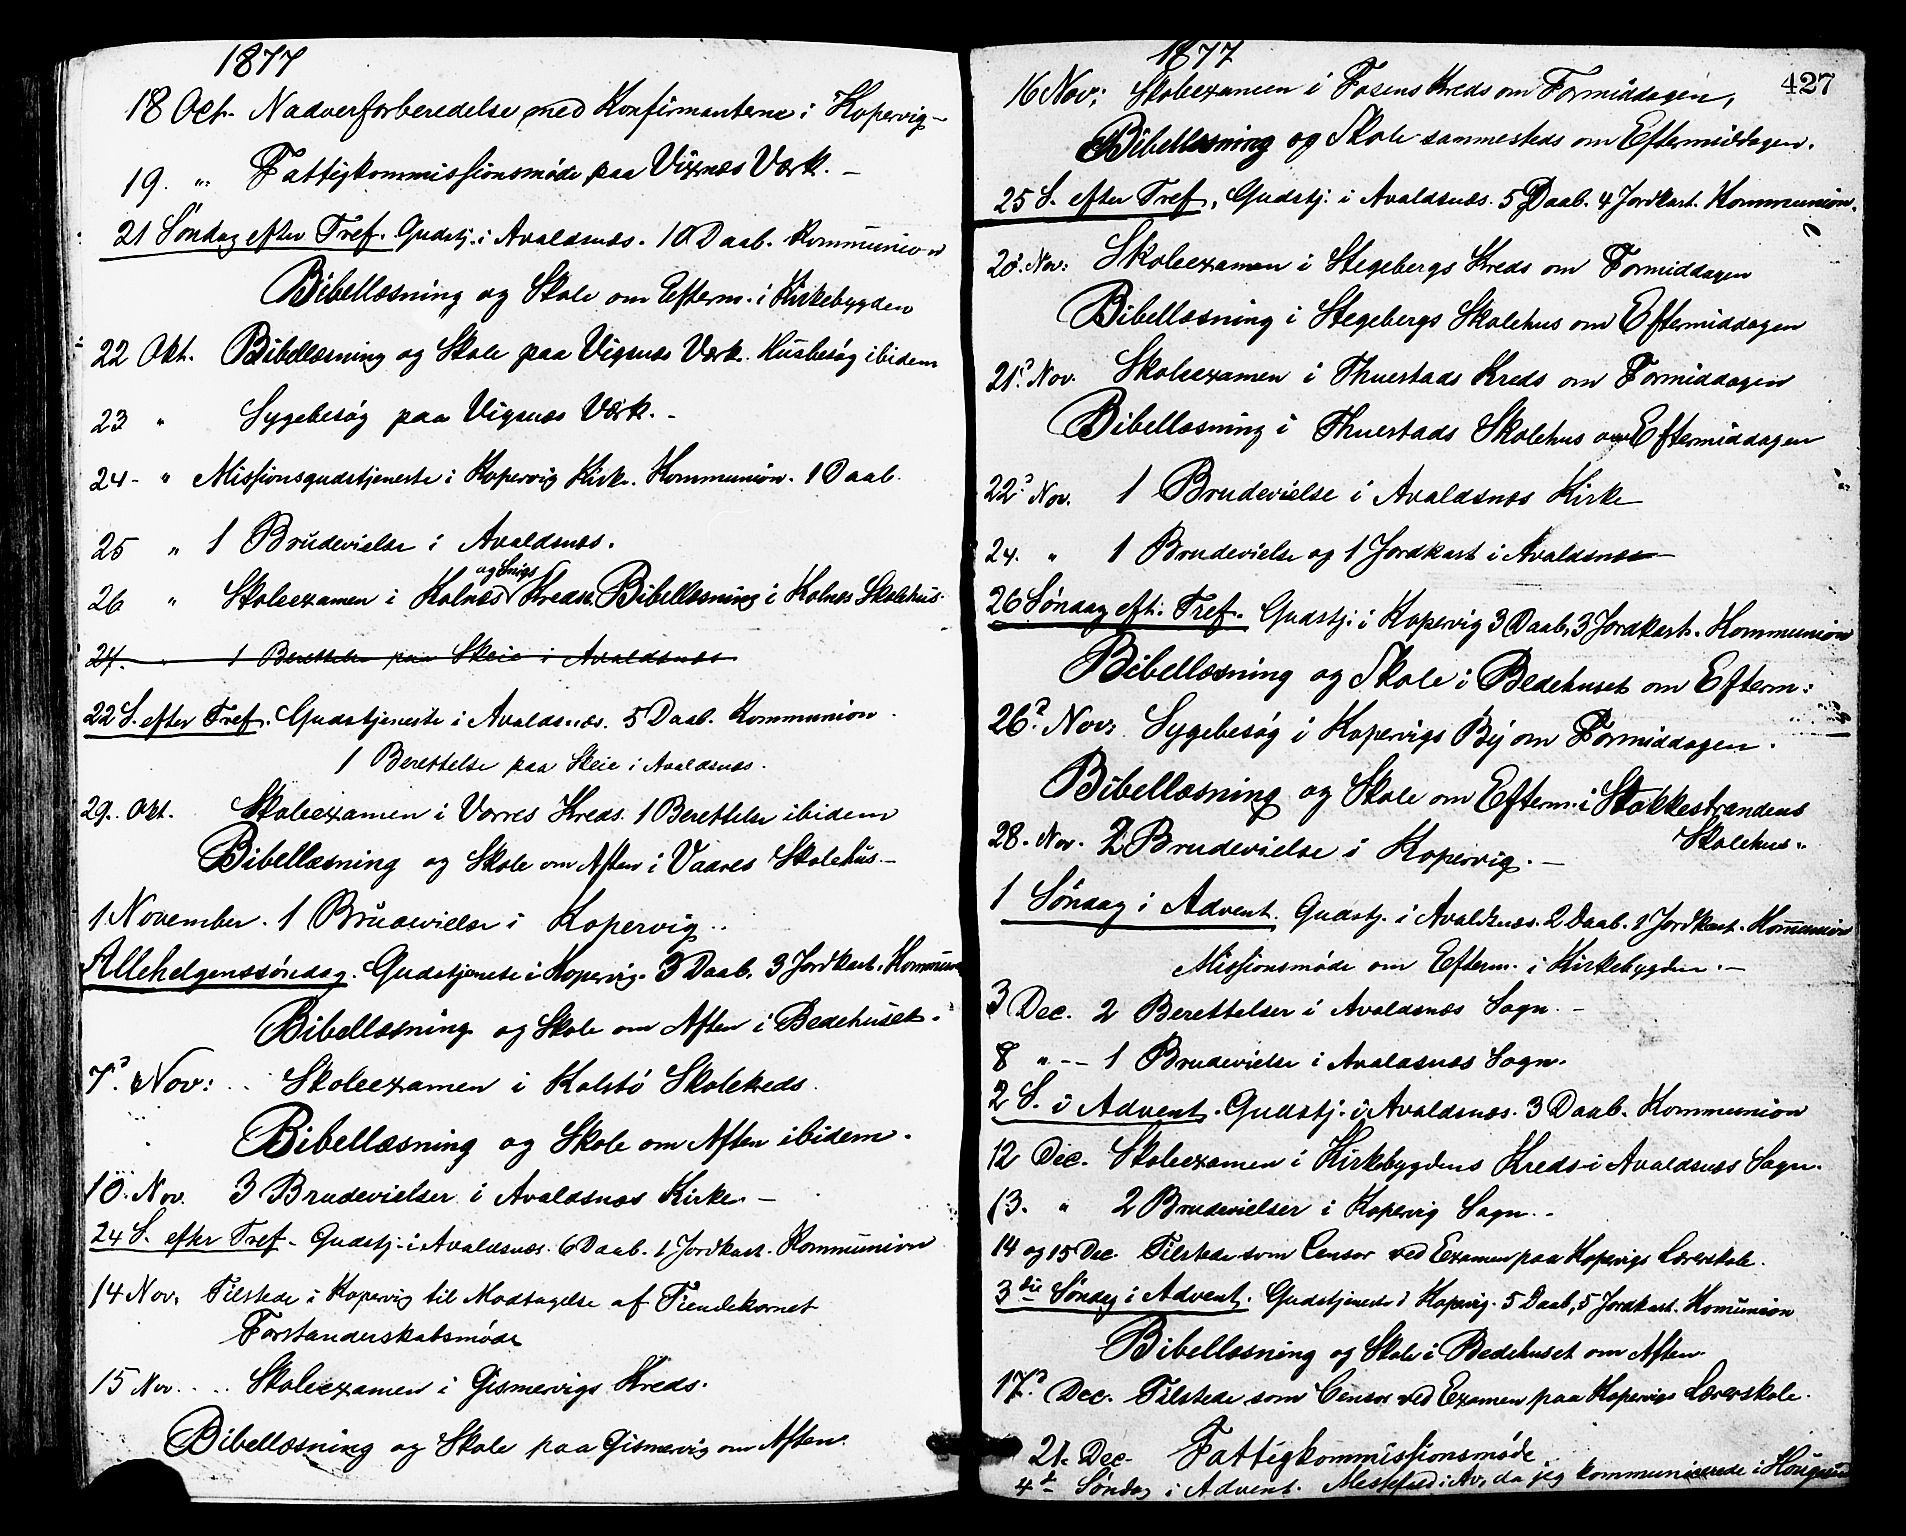 1877
18 Oct. Nadverforberedelse med Konfirmanterne i Kopervig –
19. " Fattigkommissionsmøde paa Vixnæs Værk. –
21 Søndag efter Tref. Gudstj. i Avaldsnæs. 10 Daab. Kommunion
Bibellæsning og Skole om Efterm. i Kirkebygden
22 Okt. Bibellæsning og Skole paa Vigsnæs Værk. Husbesøg ibidem
23 " Sygebesøg paa Vigsnæs Værk. –
24 – " Missionsgudstjeneste i Kopervig Kirke. Kommunion. 1 Daab.
25 " 1 Brudevielse i Avaldsnæs.
og Snigs
26 " Skoleexamen i Kolnæs Kredse. Bibellæsning i Kolnæs Skolehus.
27. " 1 Berettelse paa Skeie i Avaldsnæs
22 S. efter Tref. Gudstjeneste i Avaldsnæs. 5 Daab. Kommunion.
1 Berettelse paa Skeie i Avaldsnæs.
29. Okt. Skoleexamen i Vorres Kreds. 1 Berettelse ibidem
Bibellæsning og Skole om Aften i Vaares Skolehus. –
1 November. 1 Brudevielse i Kopervig..
Allehelgenssøndag. Gudstjeneste i Kopervig. 3 Daab. 3 Jordkast. Kommun
Bibellæsning og Skole om Aften i Bedehuset.
7. Nov: .. Skoleexamen i Kolstø Skolekreds.
Bibellæsning og Skole om Aften ibidem.
10. Nov. 3 Brudevielser i Avaldsnæs Kirke. –
24 S. efter Tref – Gudstj. i Avaldsnæs. 6 Daab. 1 Jordkast. Kommunion
14 Nov. Tilstede i Kopervig til Modtagelse af Tiendekornet
Forstanderskabsmøde
15 Nov. ... Skoleexamen i Gismervigs Kreds.
Bibellæsning og Skole paa Gismervig om Aften.
1877
427
16 Nov: Skoleexamen i Fosens Kreds om Formiddagen,
Bibellæsning og Skole sammesteds om Eftermiddagen.
25 S. efter Tref. Gudstj. i Avaldsnæs. 5 Daab. 4 Jordkast. Kommunion.
20. Nov: Skoleexamen i Stegebergs Kreds om Formiddagen
Bibellæsning i Stegebergs Skolehus om Eftermiddagen
21. Nov. Skoleexamen i Thuestads Kreds om Formiddagen
Bibellæsning i Thuestads Skolehus om Eftermiddagen
22. Nov. 1 Brudevielse i Avaldsnæs Kirke
24. " 1 Brudevielse og 1 Jordkast i Avaldsnæs
26 Søndag eft: Tref. Gudstj. i Kopervig 3 Daab, 3 Jordkast. Kommunion
Bibellæsning og Skole i Bedehuset om Efterm:
26. Nov: Sygebesøg i Kopervigs By om Formiddagen.
Bibellæsning og Skole om Efterm. i Stokkestrandens
Skolehus.
28. Nov. 2 Brudevielse i Kopervig. –
1 Søndag i Advent. Gudstj. i Avaldsnæs. 2 Daab. 1 Jordkast. Kommunion
Missionsmøde om Efterm. i Kirkebygden. –
3 Dec. 2 Berettelser i Avaldsnæs Sogn. –
8 " – – 1 Brudevielse i Avaldsnæs Sogn.
2 S. i Advent. Gudstj. i Avaldsnæs. 3 Daab. Kommunion
12 Dec. Skoleexamen i Kirkebygdens Kreds i Avaldsnæs Sogn.
13. " 2 Brudevielser i Kopervig Sogn. –
14 og 15 Dec Tilstede som Censor ved Examen paa Kopervigs Lærerskole.
3die Søndag i Advent. Gudstjeneste i Kopervig. 5 Daab, 5 Jordkast. Komunion
Bibellæsning og Skole i Bedehuset om Aften.
17. Dec. Tilstede som Censor ved Examen paa Kopervigs Lærerskole.
21. Dec. Fattigkommissionsmøde
4de Søndag i Advent. Messefald i Av., da jeg kommunicerede i